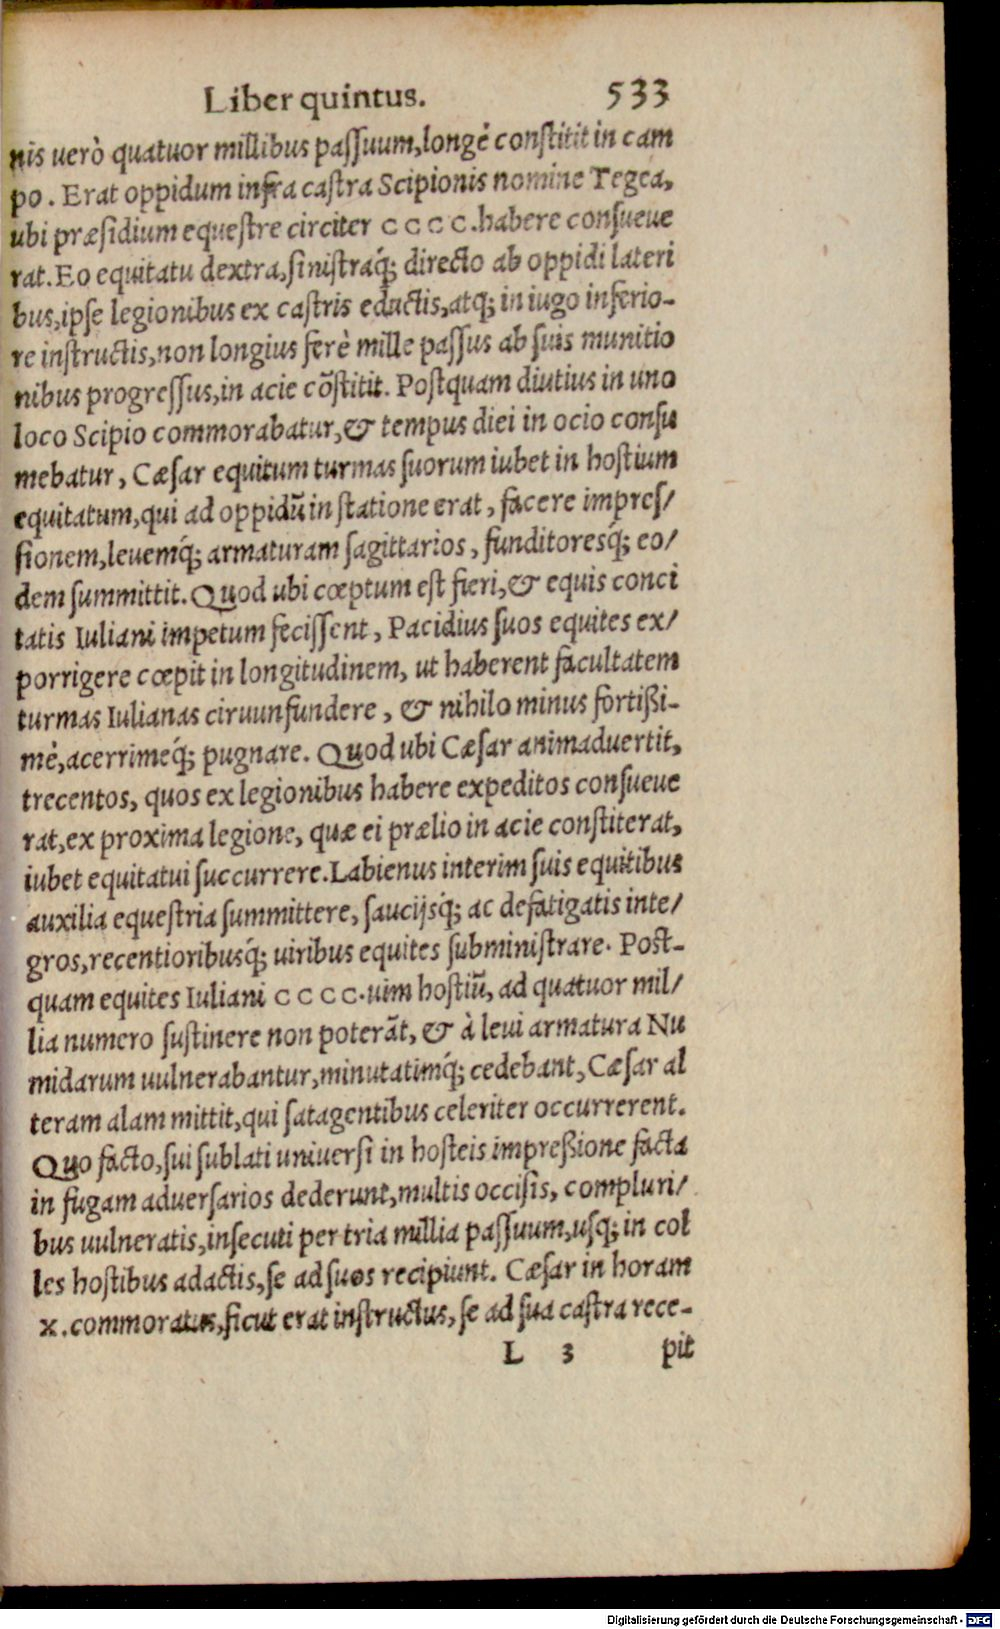 Liber quintus. 533
nis uerò quatuor millibus paſſuum, longè conſtitit in cam
po. Erat oppidum infra caſtra Scipionis nomine Tegea,
ubi præſidium equeſtre circiter CCCC. habere conſueue
rat. Eo equitatu dextra, ſiniſtraq́; directo ab oppidi lateri
bus, ipſe legionibus ex caſtris eductis, atq; in iugo inferio-
re inſtructis, non longius ferè mille paſſus ab ſuis munitio
nibus progreſſus, in acie cõſtitit. Poſtquam diutius in uno
loco Scipio commorabatur, & tempus diei in ocio conſu
mebatur, Cæſar equitum turmas ſuorum iubet in hoſtium
equitatum, qui ad oppidũ in ſtatione erat, facere impreſ/
ſionem, leuemq́; armaturam ſagittarios, funditoresq́; eo/
dem ſummittit. Quod ubi cœptum eſt fieri, & equis conci
tatis Iuliani impetum feciſſent, Pacidius ſuos equites ex/
porrigere cœpit in longitudinem, ut haberent facultatem
turmas Iulianas ciruunfundere, & nihilo minus fortißi-
mè, acerrimeq́; pugnare. Quod ubi Cæſar animaduertit,
trecentos, quos ex legionibus habere expeditos conſueue
rat, ex proxima legione, quæ ei prælio in acie conſtiterat,
iubet equitatui ſuccurrere. Labienus interim ſuis equitibus
auxilia equeſtria ſummittere, ſaucijsq́; ac defatigatis inte/
gros, recentioribusq́; uiribus equites ſubminiſtrare. Poſt-
quam equites Iuliani CCCC. uim hoſtiũ, ad quatuor mil/
lia numero ſuſtinere non poterãt, & à leui armatura Nu
midarum uulnerabantur, minutatimq́; cedebant, Cæſar al
teram alam mittit, qui ſatagentibus celeriter occurrerent.
Quo facto, ſui ſublati uniuerſi in hoſteis impreßione facta
in fugam aduerſarios dederunt, multis occiſis, compluri/
bus uulneratis, inſecuti per tria millia paſſuum, uſq; in col
les hoſtibus adactis, ſe ad ſuos recipiunt. Cæſar in horam
x. commoratus, ſicut erat inſtructus, ſe ad ſua caſtra rece-
L 3 pit
Digitalisierung gefördert durch die Deutsche Forschungsgemeinschaft - DFG